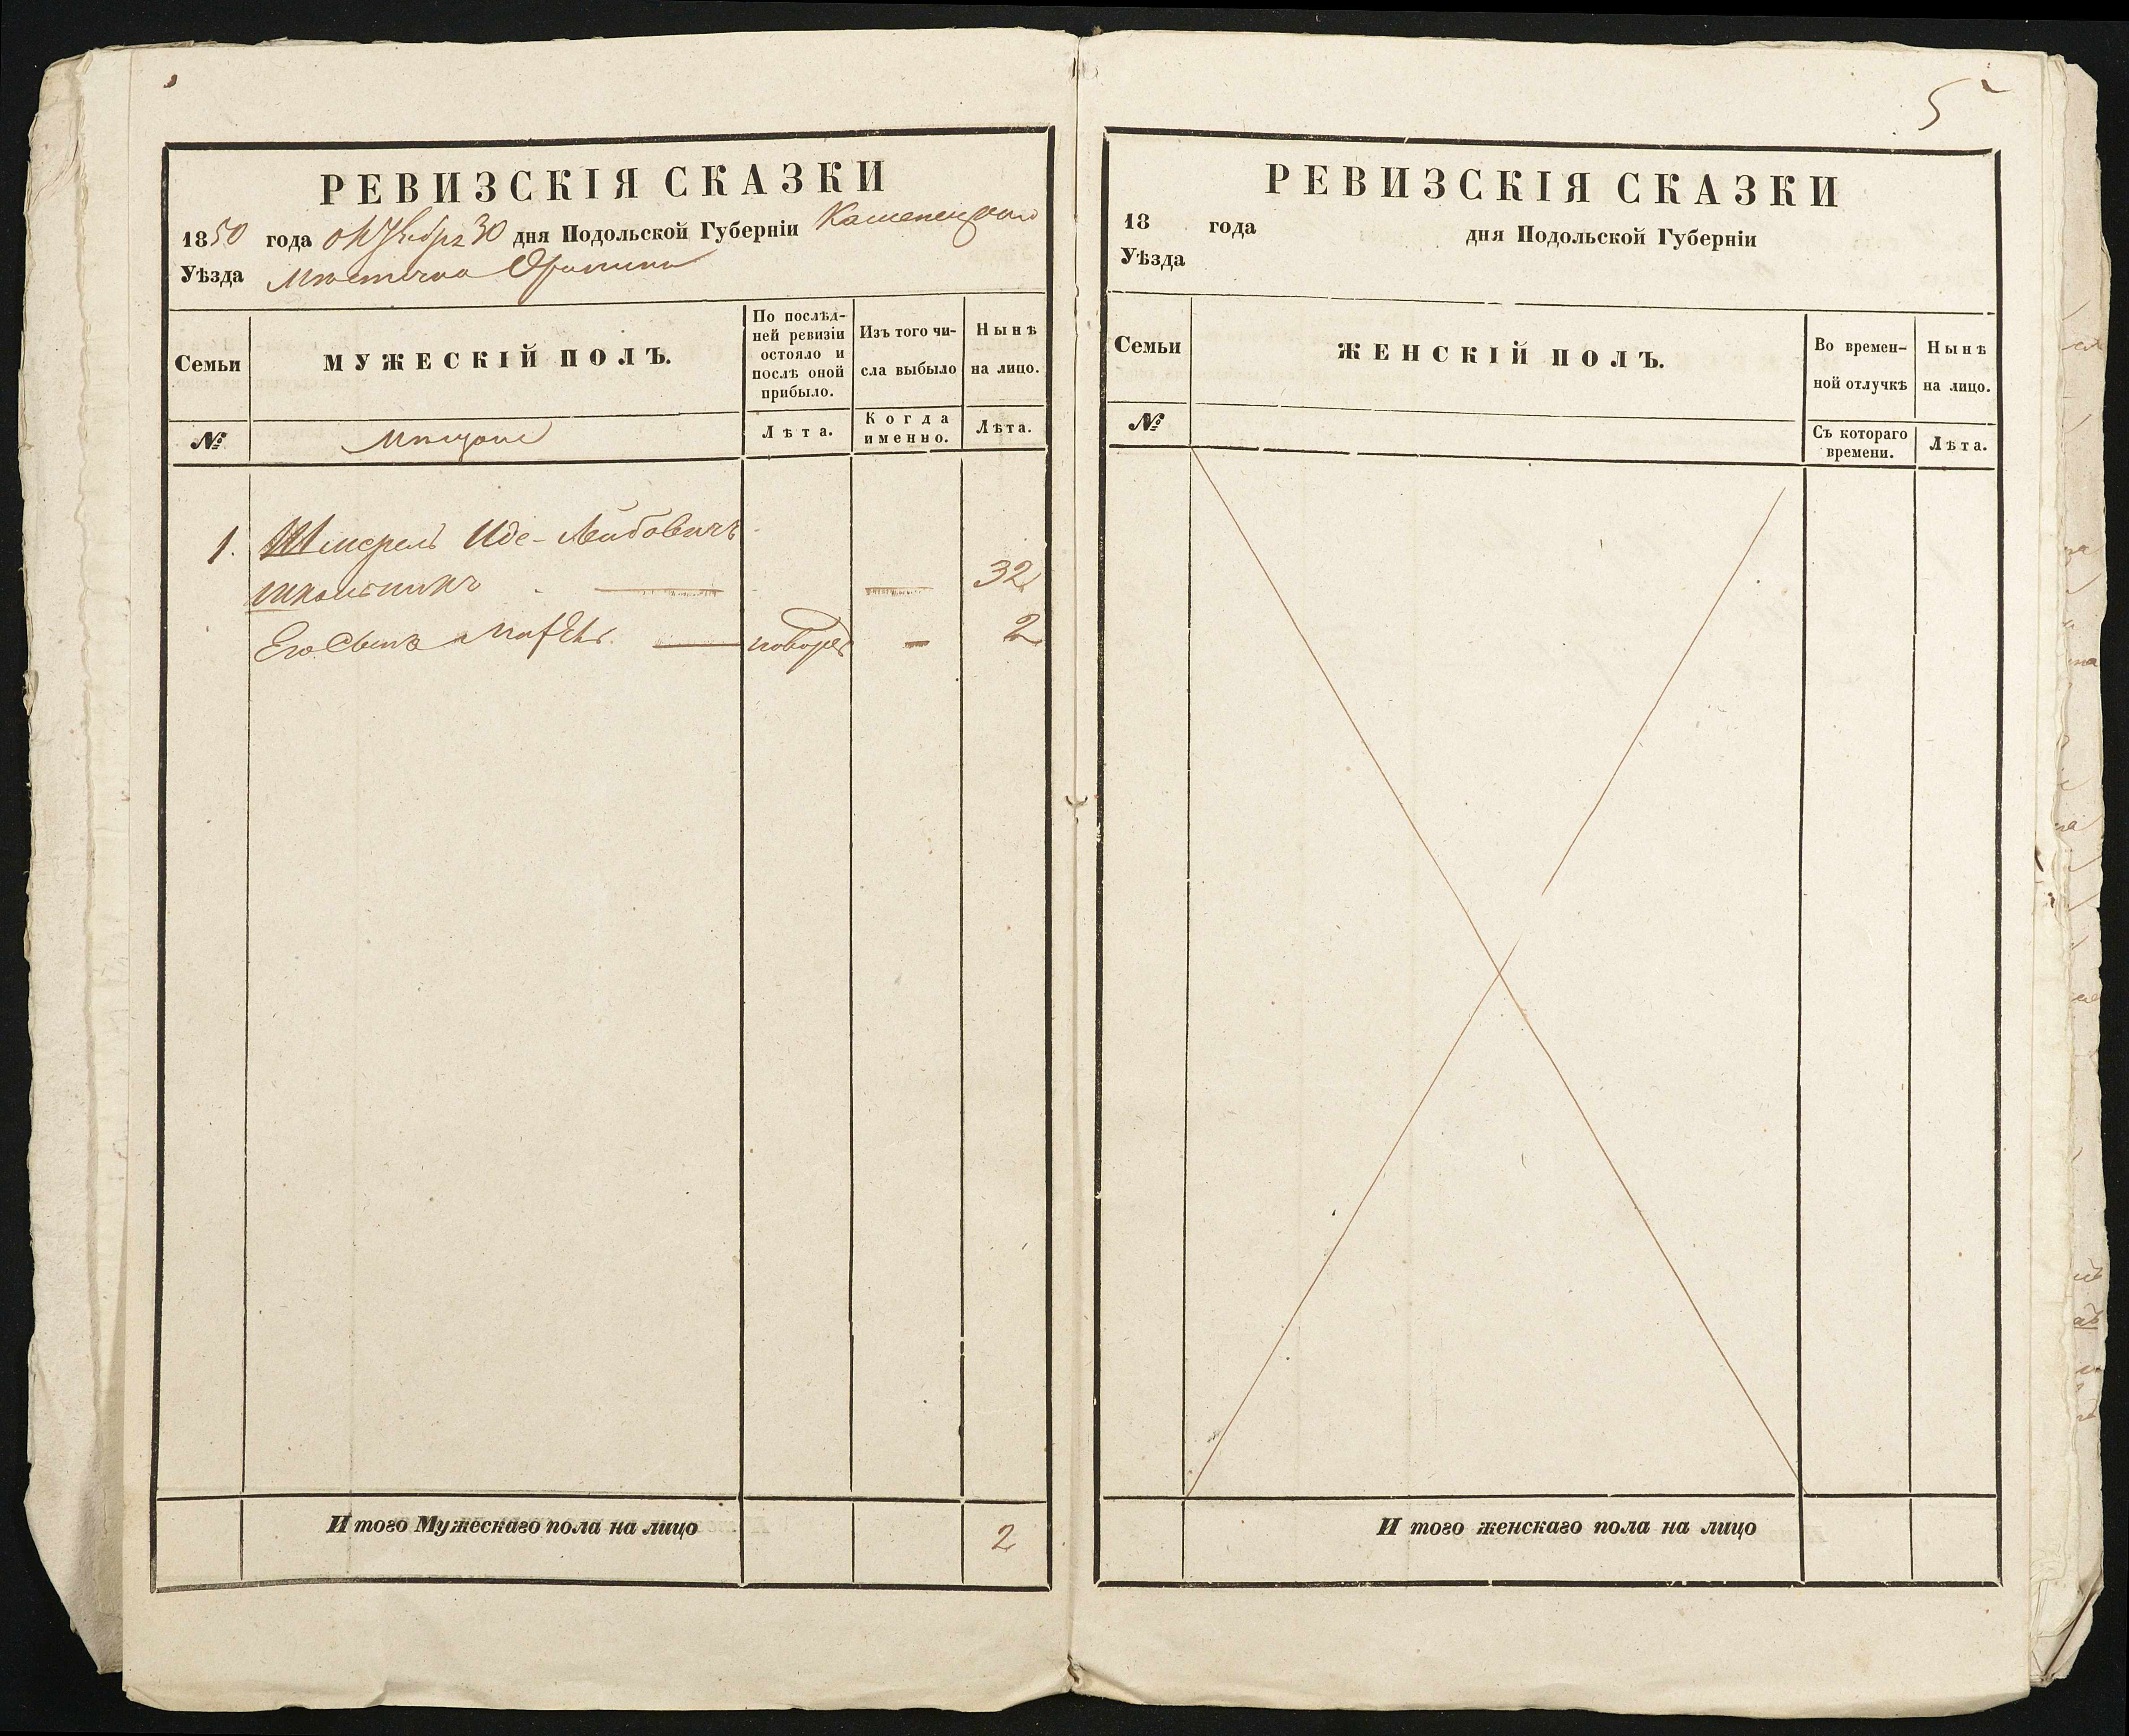 5
РЕВИЗСКІЯ СКАЗКИ
1850 года октября 30 дня Подольской Губерніи Каменецкаго
Уѣзда Мѣстечка Оринина
Семьи
МУЖЕСКІЙ ПОЛЪ.
По послѣд-
ней ревизіи
остояло и
послѣ оной
прибыло.
Изъ того чи-
сла выбыло
Нынѣ
на лицо.
№
Мѣщане
Лѣта.
Когда
именно.
Лѣта.
1. Шмерель Иде-Лейбовичъ
школьникъ 32
Его Сынъ новорож 2
И того Мужескаго пола на лицо 2
РЕВИЗСКІЯ СКАЗКИ
18 года дня Подольской Губерніи
Уѣзда
Семьи
ЖЕНСКІЙ ПОЛЪ.
Во времен-
ной отлучкѣ
Нынѣ
на лицо.
№
Съ котораго
времени.
Лѣта.
И того женскаго пола на лицо